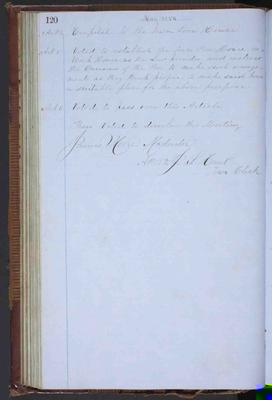 120
May
to the
Art
Voted to establish the Poor House in a
Work House as the law provides and instruct
the Overseers of the Poor to make such arrange-
ments as they think proper to make said house
a suitable place for the above purpose
Art
Voted to pass over this Article
Then Voted to dissolve the Meeting
James Moderator
Attest
Town Clerk